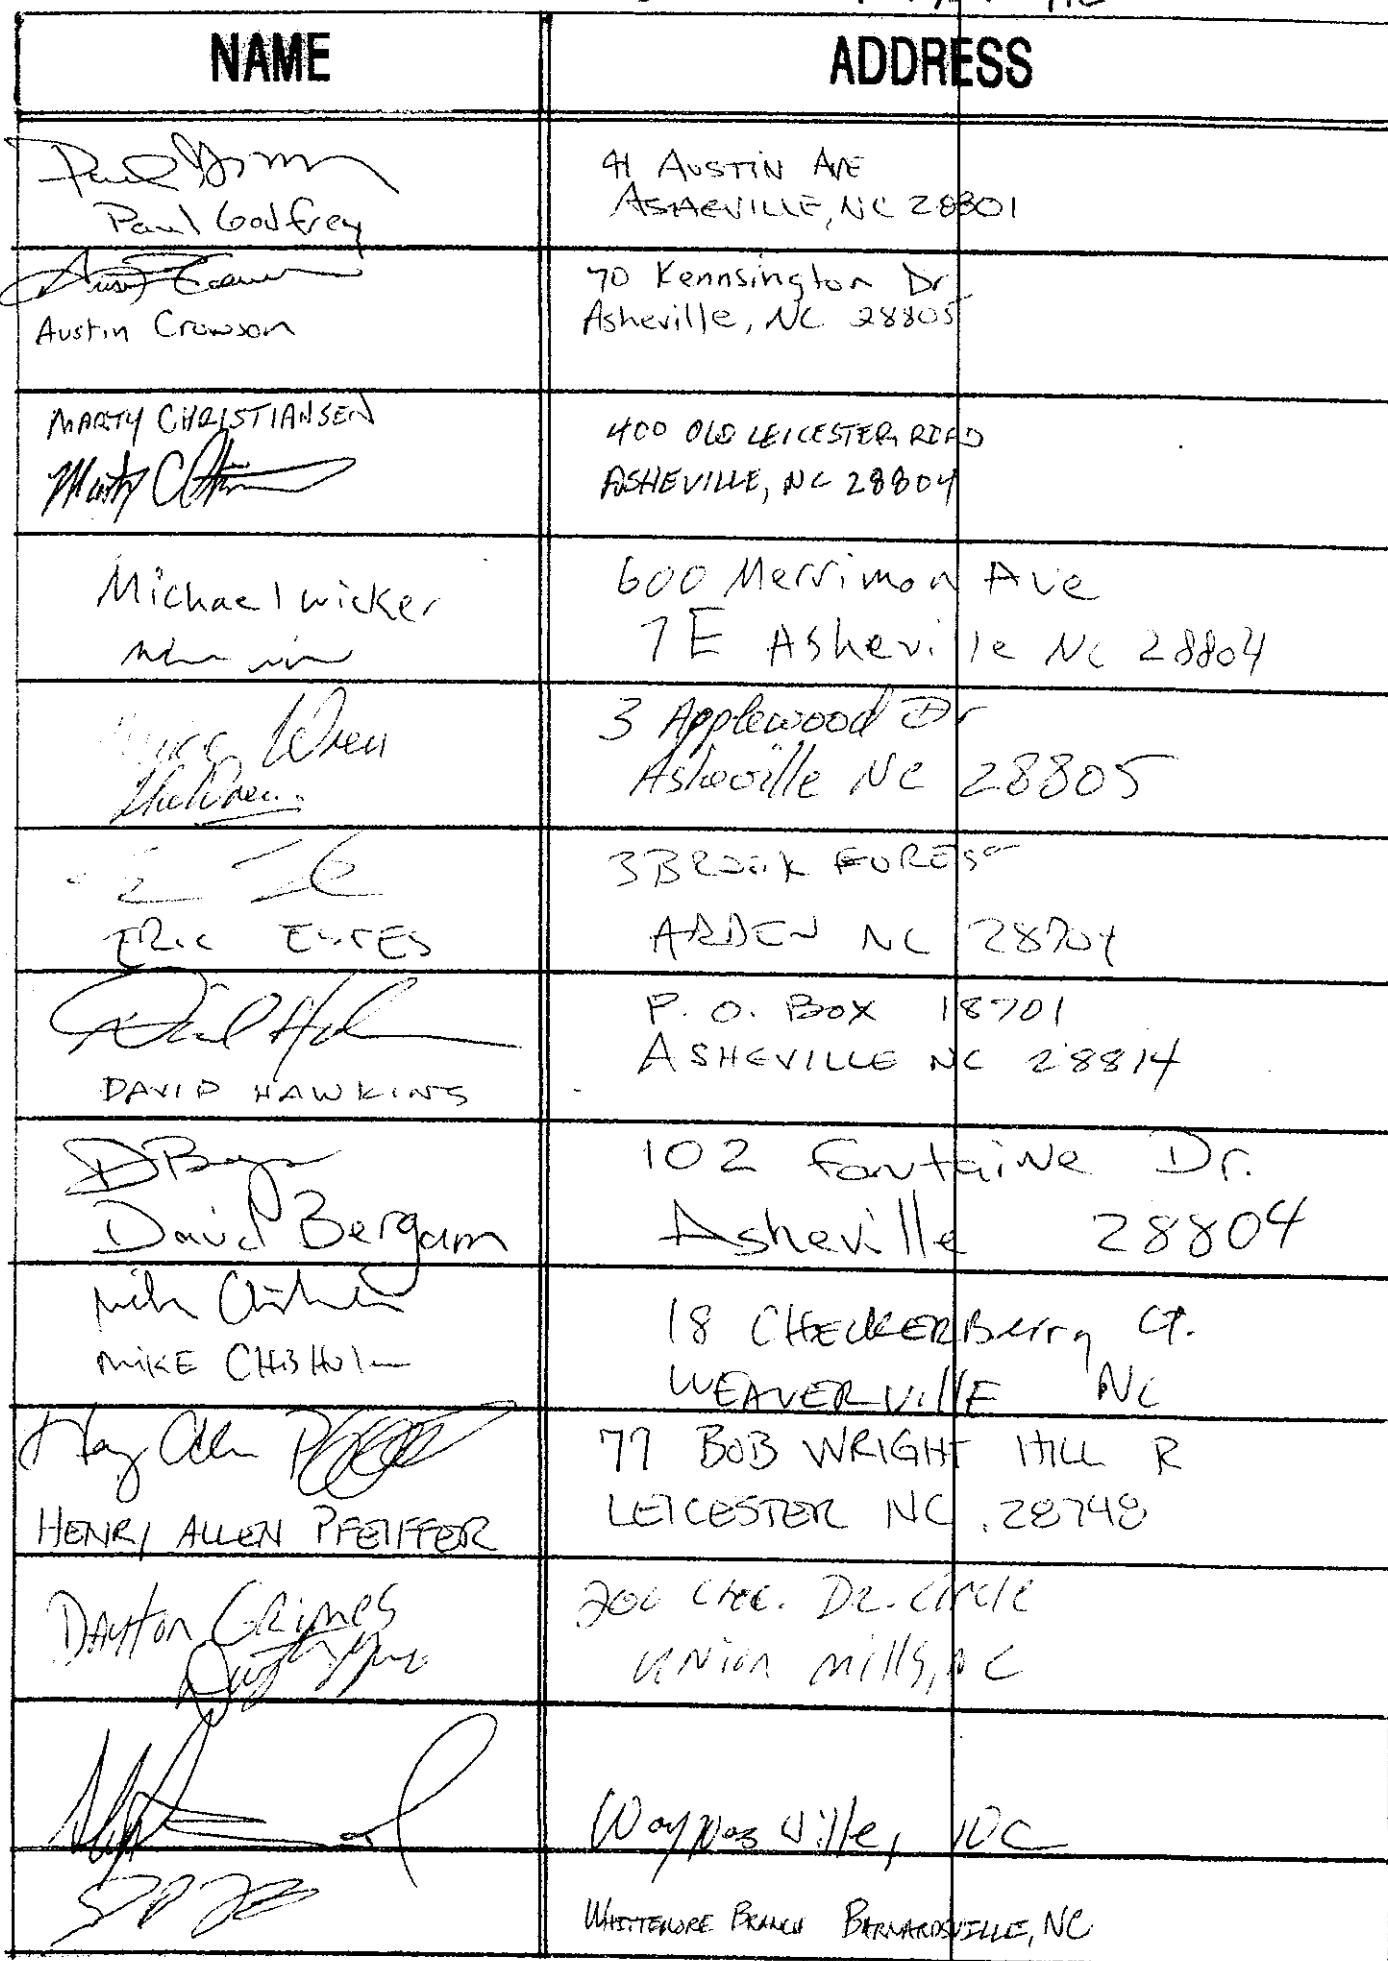 NAME ADDRESS
Paul Godfrey
41 AUSTIN AVE
ASHEVILLE, NC 28801
Austin Crowson
70 Kennsington Dr
Asheville, NC 28805
MARTY CHRISTIANSEN
400 OLD LEICESTER ROAD
ASHEVILLE, NC 28804
Michael wicker
600 Merrimon Ave
7E Asheville NC 28804
Wren
3 Applewood Dr
Asheville NC 28805
ERIC ESTES
3 BROOK FOREST
ARDEN NC 28704
DAVID HAWKINS
P. O. BOX 18701
ASHEVILLE NC 28814
David Bergam
102 Fontaine Dr.
Asheville 28804
MIKE CHISHOLM
18 CHECKERBerry CT.
WEAVERVillE NC
HENRY ALLEN PFEIFFER
77 BOB WRIGHT HILL R
LEICESTER NC. 28748
DAYton GRimes
200 Dr. Circle
UNion mills, NC
Waynesville, NC
WHITTEMORE BRANCH BARNARDSVILLE, NC